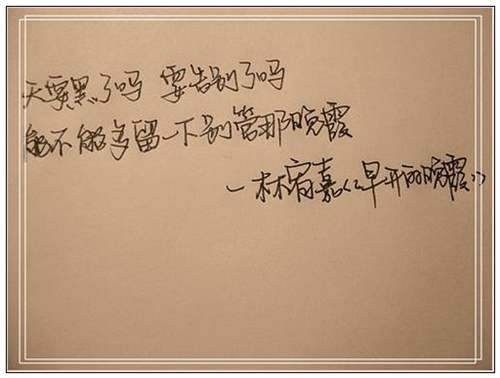 天要黑了吗 要告别了吗
能不能多留一下别管那晚霞
—林宥嘉《早开的晚霞》